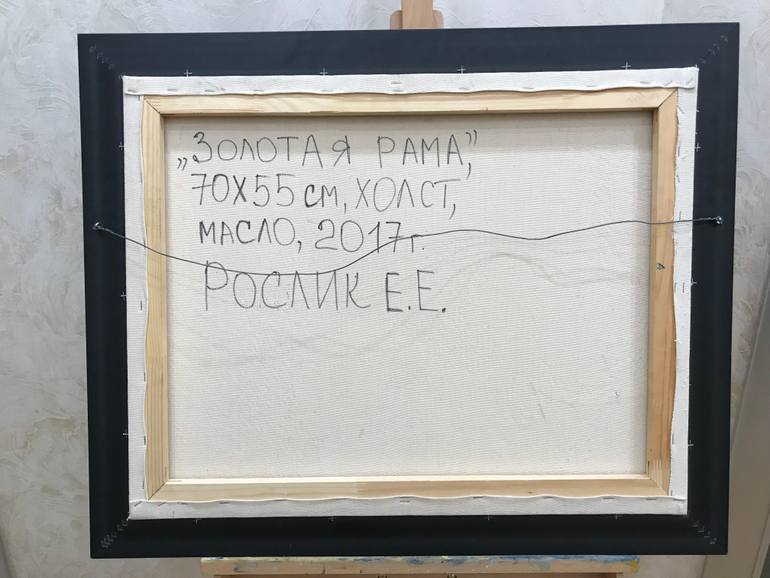 „ЗОЛОТАЯ РАМА",
70X55 см, ХОЛСТ,
МАСЛО, 2017г.
РОСЛИК Е.Е.